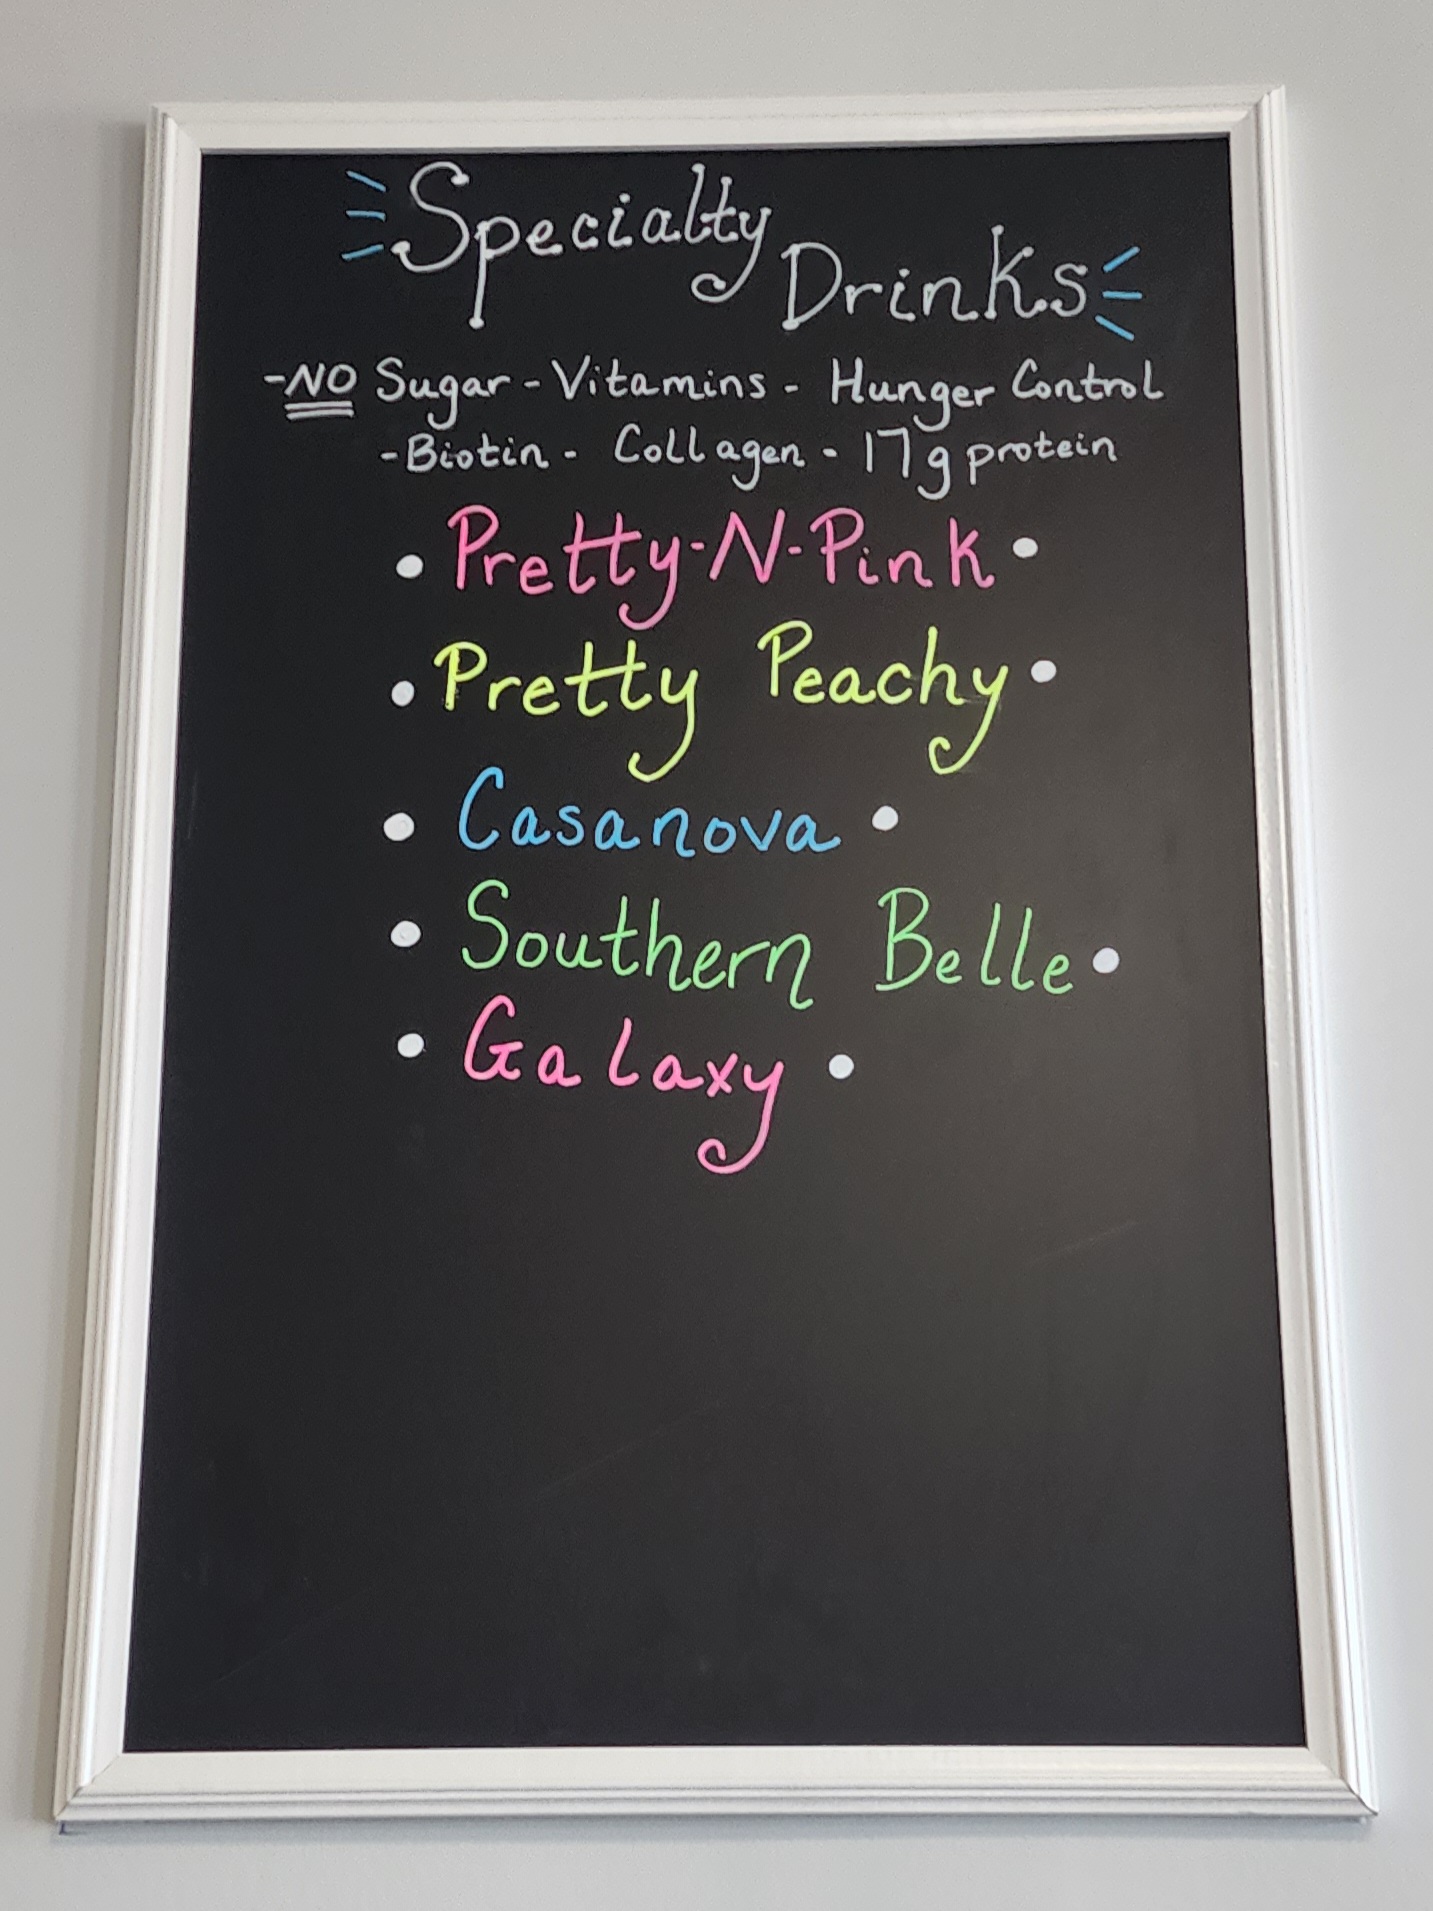 Specialty
Drinks
-NO Sugar - Vitamins - Hunger Control
-Biotin - Collagen - 17g protein
• Pretty-N-Pink •
• Pretty Peachy •
• Casanova •
• Southern Belle •
• Galaxy •